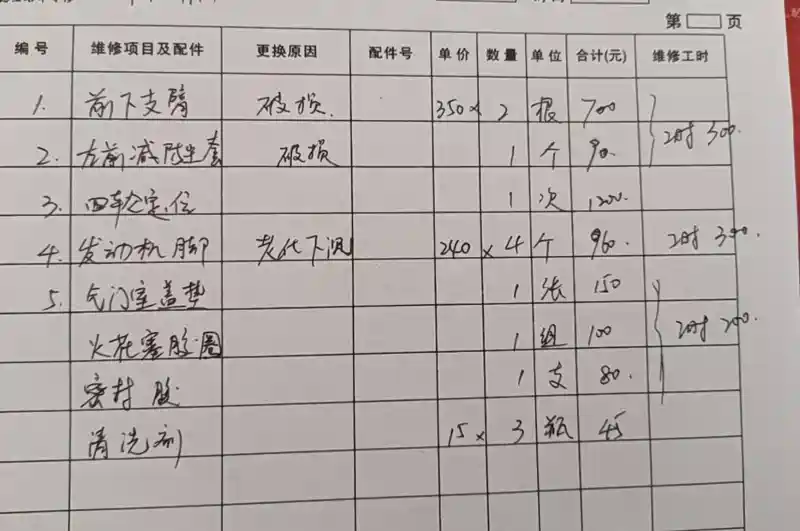 第 页
编号 维修项目及配件 更换原因 配件号 单价 数量 单位 合计(元) 维修工时
1. 前下支臂 破损. 350 × 2 根 700
2. 左前减震座套 破损 1 个 90. 2时 300.
3. 四轮定位 1 次 1200.
4. 发动机脚 老化下沉 240 × 4 个 960. 2时 300.
5. 气门室盖垫 1 张 150
火花塞胶圈 1 组 100 2时 200.
密封胶 1 支 80.
清洗剂 15 × 3 瓶 45